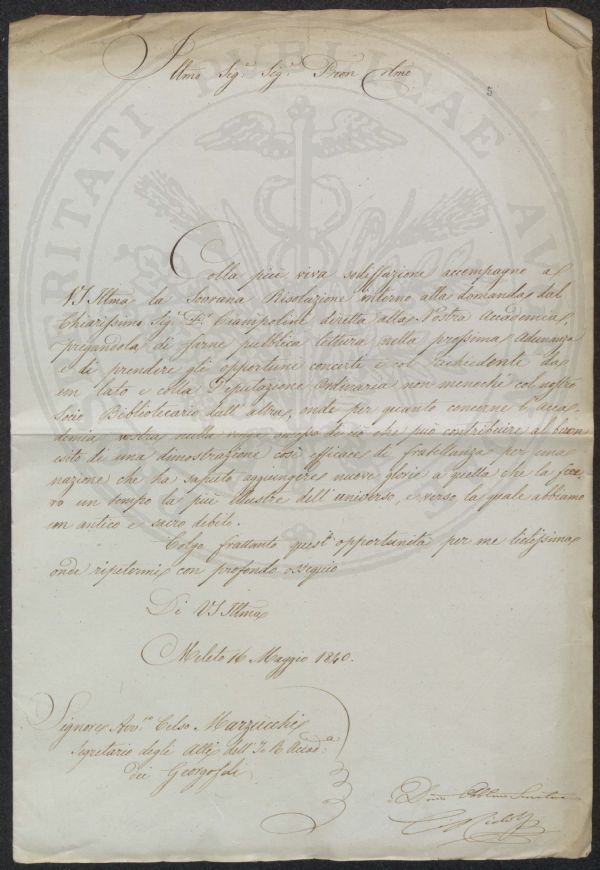 Illmo Sig.r Sig.r Pron Colmo
5
Colla più viva sodisfazione accompagno a
VS Illma la Sovrana Risoluzione intorno alla domanda dal
Chiarissimo Sig.r D.r Ciampolini diretta alla Nostra Accademia,
pregandola di farne pubblica lettura nella prossima Adunanza
e di prendere gli opportuni concerti e col richiedente da
un lato e colla Deputazione Ordinaria non menochè col nostro
Socio Bibliotecario dall'altra, onde per quanto concerne l'acca-
demia nostra nulla venga omesso di ciò che può contribuire al buon
esito di una dimostrazione così efficace di fratellanza per una
nazione che ha saputo aggiungere nuove glorie a quella che la fece-
ro un tempo la più illustre dell'universo, e verso la quale abbiamo
un antico e sacro debito.
Colgo frattanto quest'opportunità per me lietissima
onde ripetermi con profondo ossequio
Di VS Illma
Meleto 16 Maggio 1840.
Signore Avv.to Celso Marzucchi
Segretario degli Atti dell'I e R Accad.a
dei Georgofili
Dmo Obblmo Servitore
C Ridolfi
VERITATI PUBLICAE